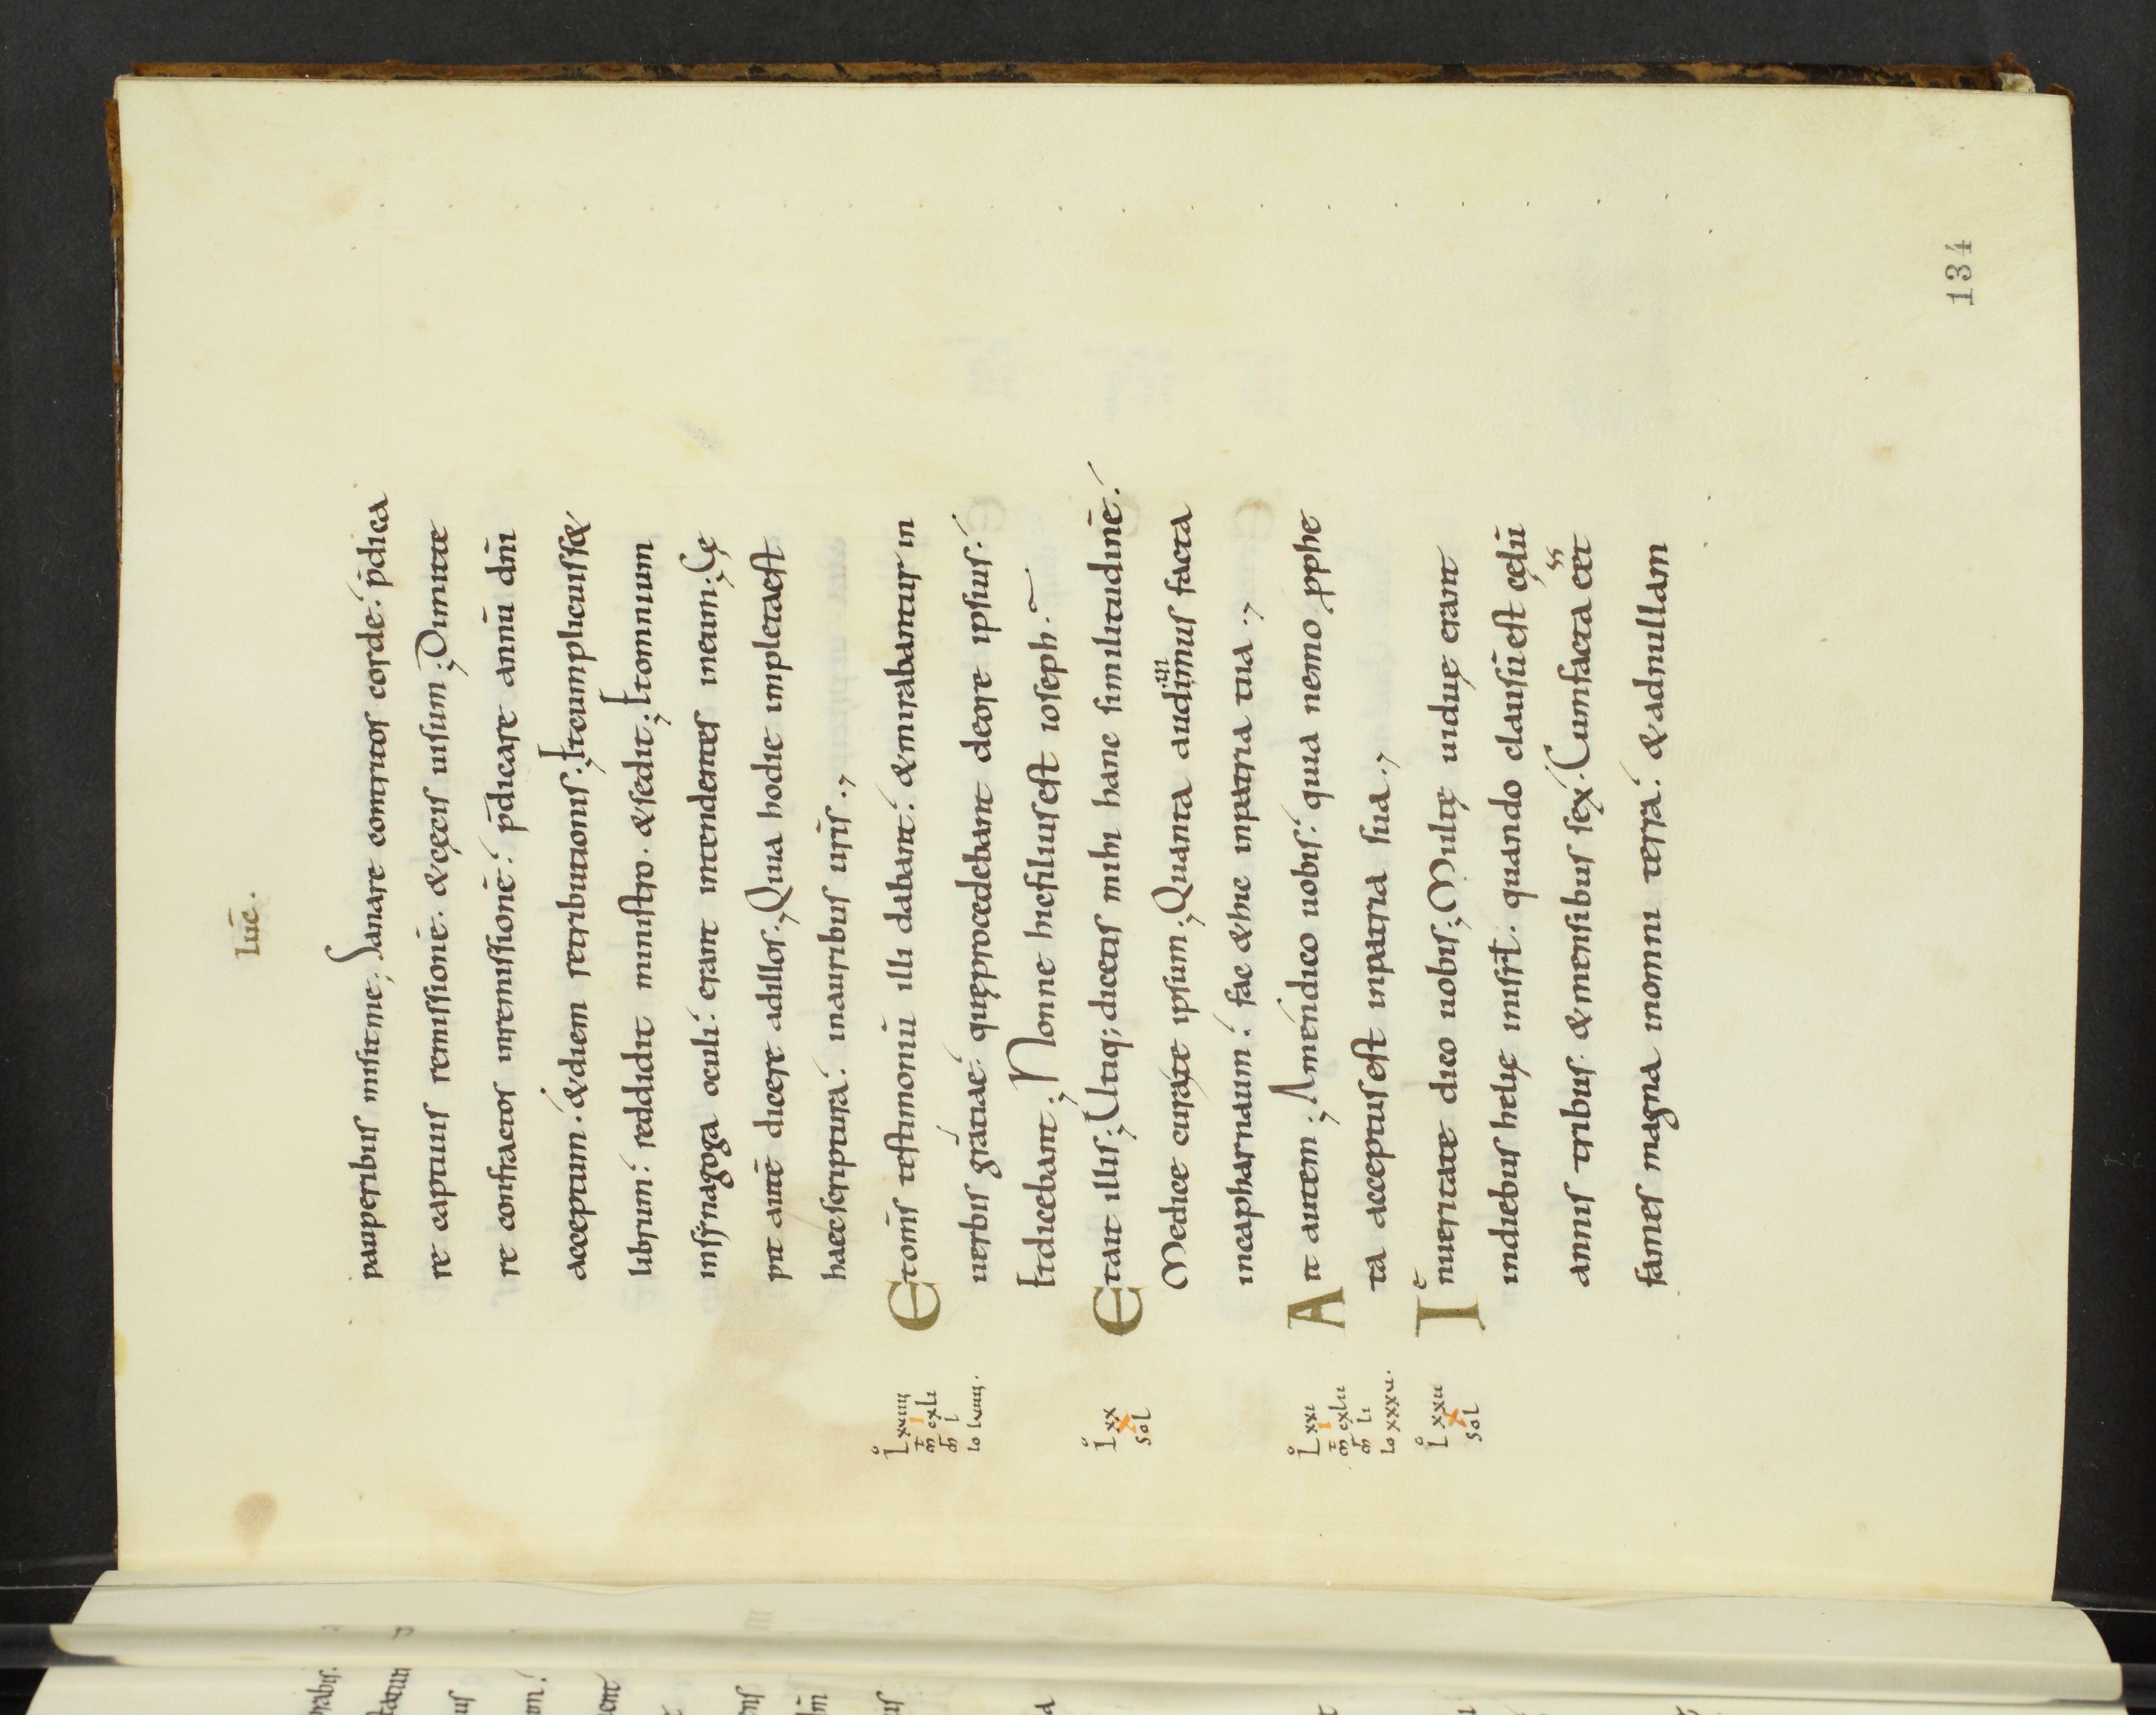 luc̄.
pauperibus misit me; Sanare contritos corde. p̄dica
re captiuis remissionē. & cęcis uisum; Dimitte
re confractos inremissionē. p̄dicare annū dn̄i
acceptum. & diem retributionis; Et cumplicuiss&
librum. reddidit ministro. & sedit; Et omnium
insynagoga oculi. erant intendentes ineum; Cę
pit autē dicere adillos; Quia hodie impleta est
haec scriptura. inauribus ur̄is.,
Et om̄s testimoniū illi dabant. & mirabantur in
uerbis grātiae. quę procedebant deore ipsius.
Et dicebant; Nonne hic filius est ioseph.
Et ait illis; Utiq; dicetis mihi hanc similitudinē.
Medice curate ipsum; Quanta audiuimus facta
incapharnaum. fac & hic inpatria tua.,
Ait autem; Amen dico uobis. quia nemo pphe
ta acceptus est inpatria sua.,
Inueritate dico uobis; Multę uiduę erant
indiebus helię inisrł. quando clausū est cęlū
annis tribus. & mensibus sex. Cum facta eēt
fames magna inomni terra. & adnullam
L xviiii
I
m̄t cxli
mr̄ l
Io lviiii.
L xx
X
sol
L xxi
I
m̄t cxlii
mr̄ li
Io xxxv.
L xxii
X
sol
134